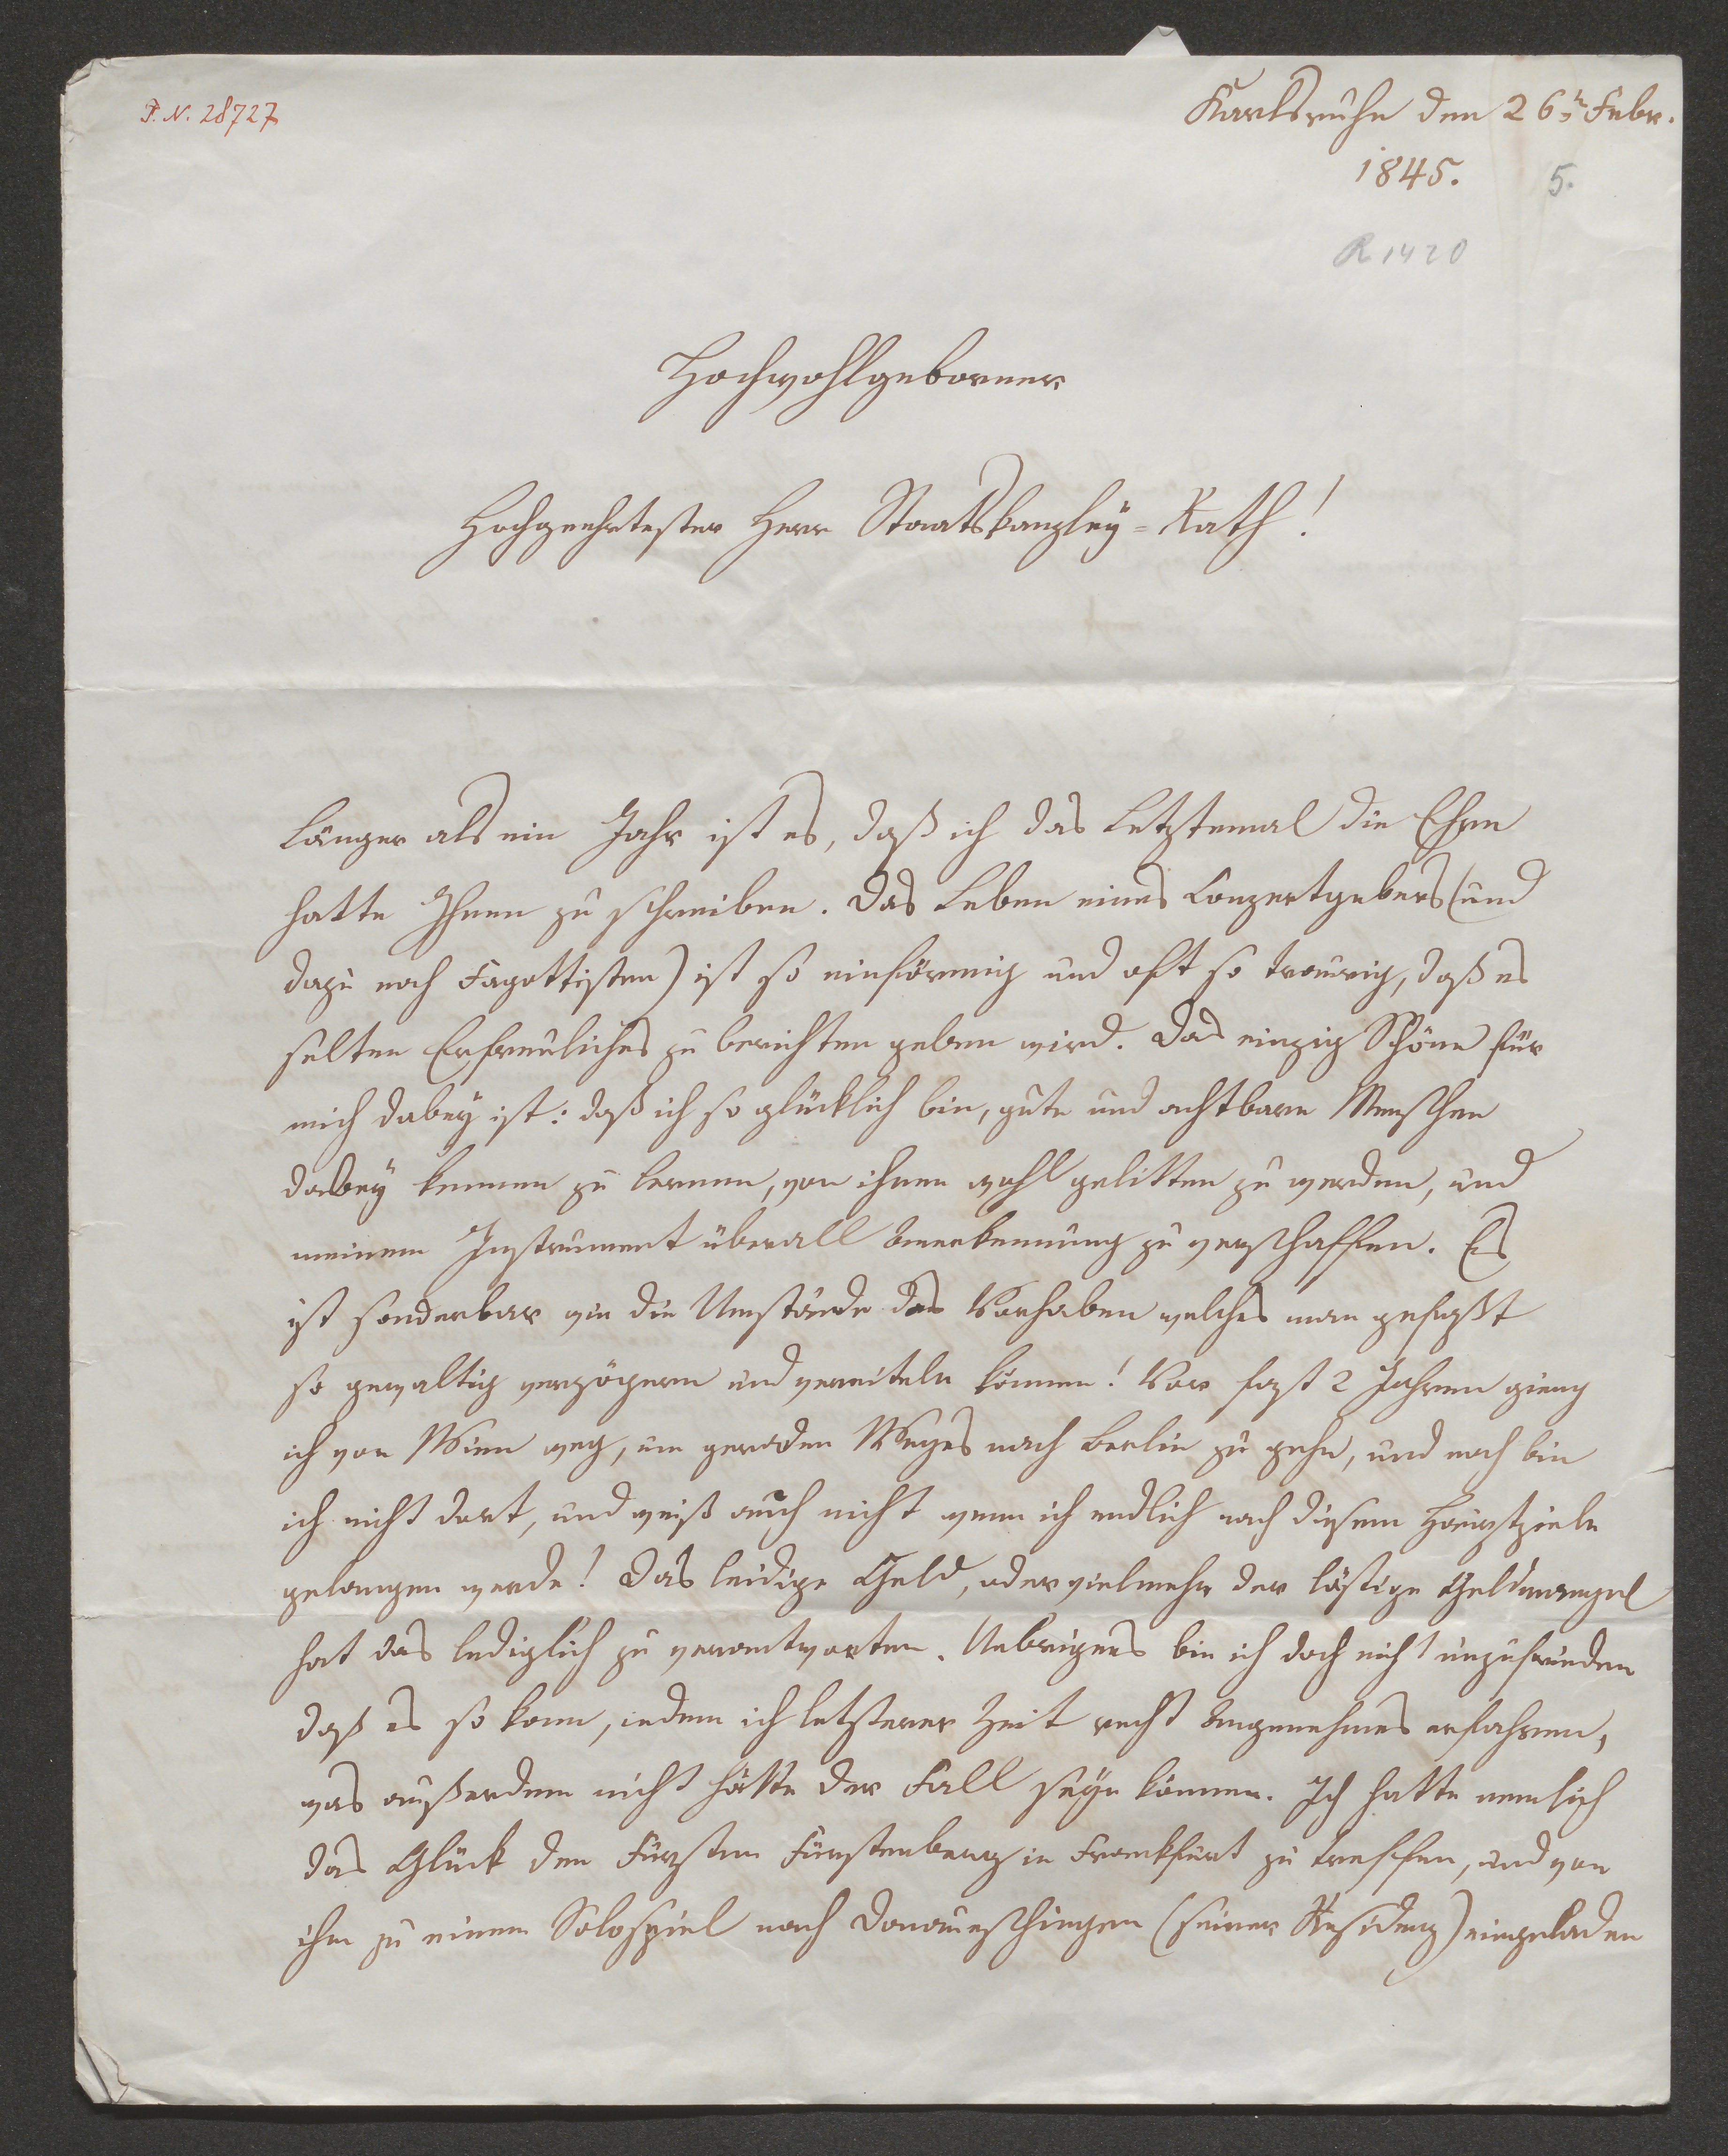 P. N. 28727
Karlsruhe den 26t Febr.
1845.
5.
R 1420
Hochwohlgeborner
Hochgeehrtester Herr Staatskanzley=Rath!
Länger als ein Jahr ist es, daß ich das Letztemal die Ehre
hatte Ihnen zu schreiben. Das Leben eines Conzertgebers (und
dazu noch Fagottisten) ist so einförmig und oft so traurig, daß es
selten Erfreuliches zu berichten geben wird. Das einzig Schöne für
mich dabey ist: daß ich so glücklich bin, gute und achtbare Menschen
dabey kennen zu lernen, von ihnen wohl gelitten zu werden, und
meinem Instrument überall Anerkennung zu verschaffen. Es
ist sonderbar wie die Umstände das Vorhaben welches man gefaßt
so gewaltig verzögern und vereiteln können! Vor fast 2 Jahren gieng
ich von Wien weg, um geraden Weges nach Berlin zu gehn, und noch bin
ich nicht dort, und weiß auch nicht wenn ich endlich nach diesem Hauptziele
gelangen werde! Das leidige Geld, oder vielmehr der lästige Geldmangel
hat das lediglich zu verantworten. Uebrigens bin ich doch nicht unzufrieden
daß es so kam, indem ich letzterer Zeit recht Angenehmes erfahren,
was außerdem nicht hätte der Fall seyn können. Ich hatte nemlich
das Glück den Fürsten Fürstenberg in Frankfurt zu treffen, und von
ihm zu einem Solospiel nach Donaueschingen (seiner Residenz) eingeladen